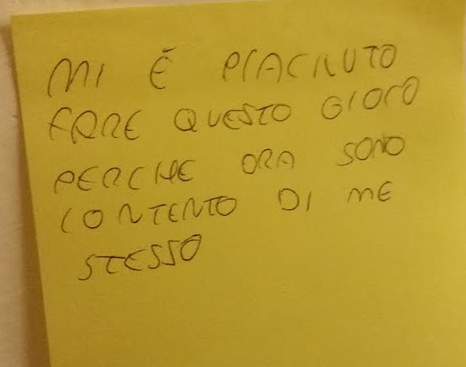 MI È PIACIUTO
FARE QUESTO GIOCO
PERCHE ORA SONO
CONTENTO DI ME
STESSO